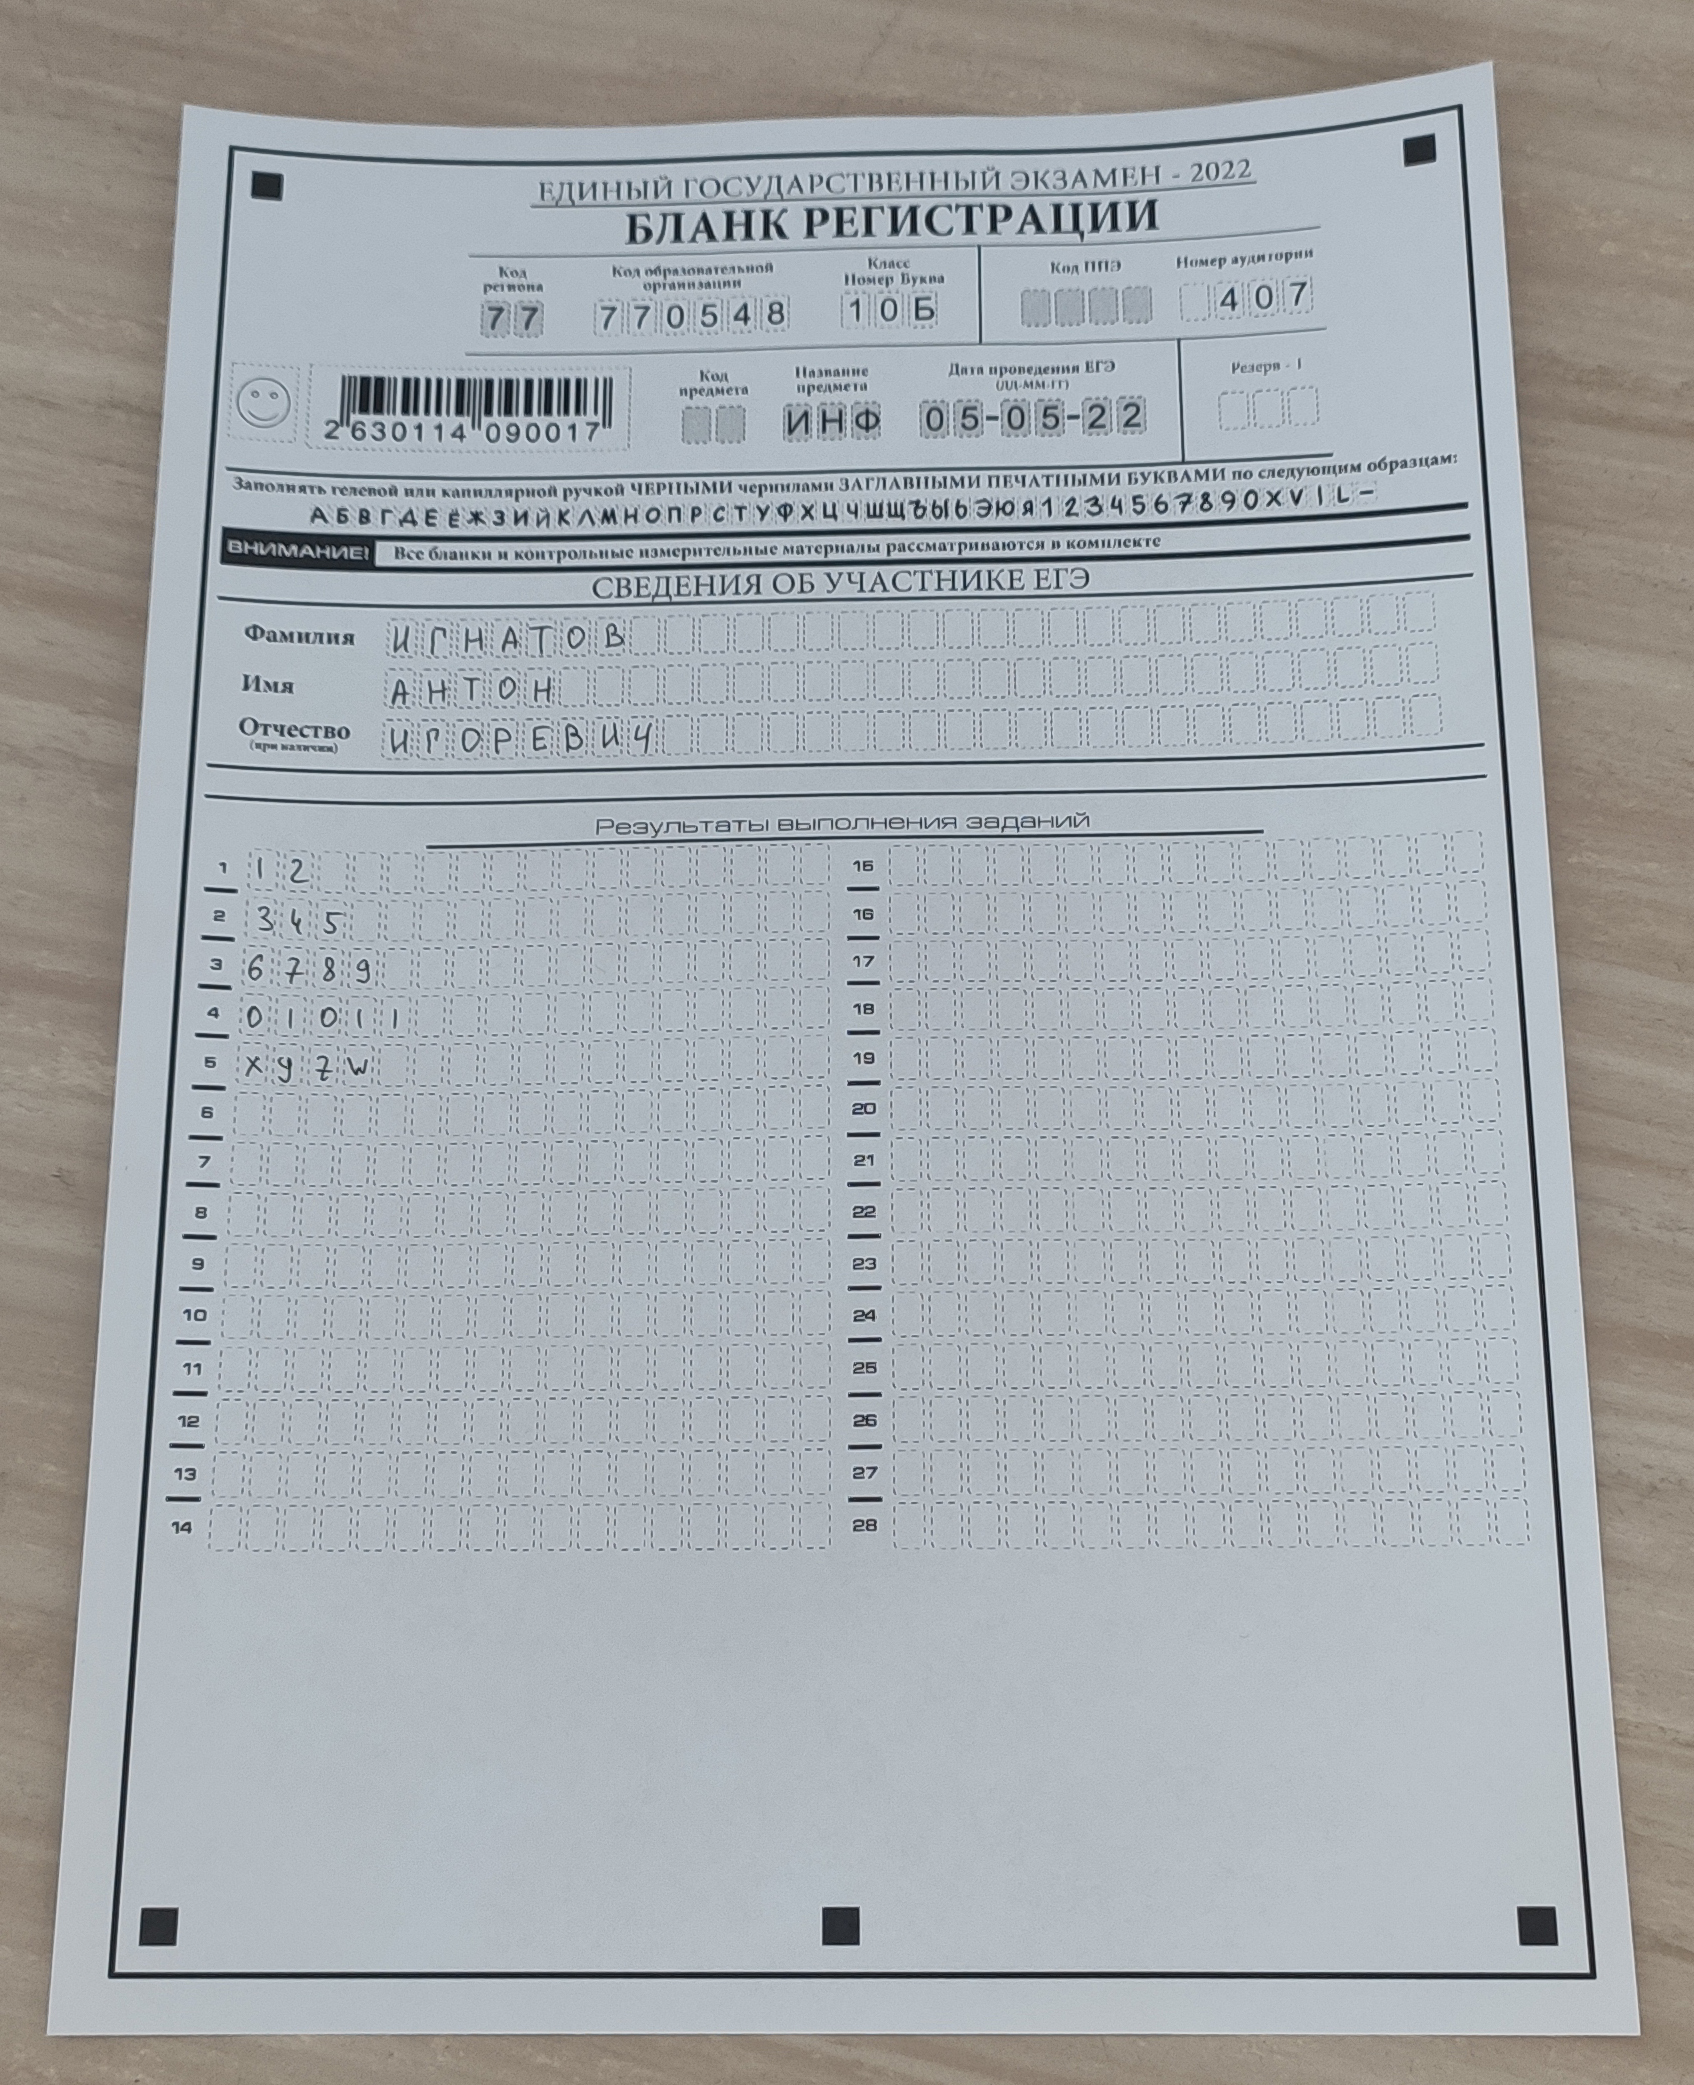 ЕДИНЫЙ ГОСУДАРСТВЕННЫЙ ЭКЗАМЕН - 2022
БЛАНК РЕГИСТРАЦИИ
Код региона
Код образовательной организации
Класс Номер Буква
Код ППЭ
Номер аудитории
77
770548
10Б
407
2630114090017
Код предмета
Название предмета
Дата проведения ЕГЭ (ДД-ММ-ГГ)
Резерв - 1
ИНФ
05-05-22
Заполнять гелевой или капиллярной ручкой ЧЕРНЫМИ чернилами ЗАГЛАВНЫМИ ПЕЧАТНЫМИ БУКВАМИ по следующим образцам:
АБВГДЕЁЖЗИЙКЛМНОПРСТУФХЦЧШЩЪЫЬЭЮЯ1234567890XVIL-
ВНИМАНИЕ! Все бланки и контрольные измерительные материалы рассматриваются в комплекте
СВЕДЕНИЯ ОБ УЧАСТНИКЕ ЕГЭ
Фамилия ИГНАТОВ
Имя АНТОН
Отчество ИГОРЕВИЧ
(при наличии)
Результаты выполнения заданий
1 12 15
2 345 16
3 6789 17
4 01011 18
5 xyzw 19
6 20
7 21
8 22
9 23
10 24
11 25
12 26
13 27
14 28